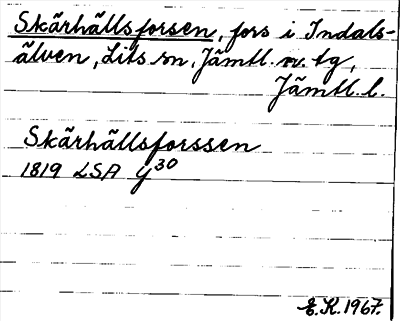 Skärhällsforsen, fors i Indals-
älven, Lits sn, Jämtl. v. tg,
Jämtl. l.
Skärhällsforssen
1819 LSA y30
E.K. 1967.